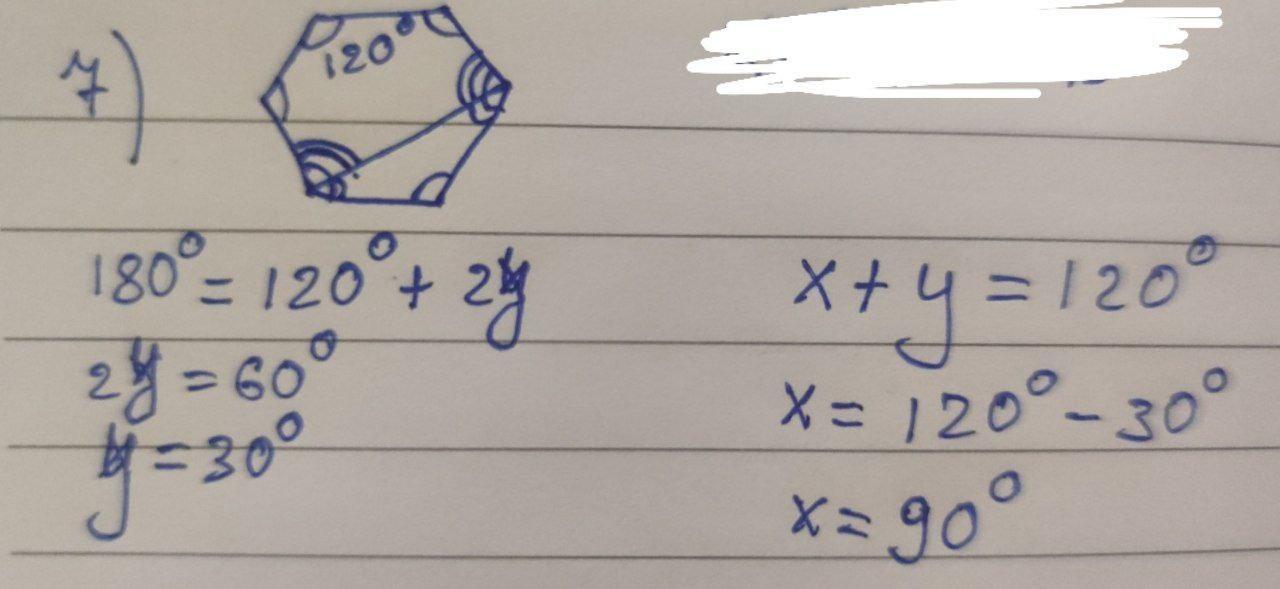 7)
120°
180° = 120° + 2y
2y = 60°
y = 30°
x + y = 120°
x = 120° - 30°
x = 90°